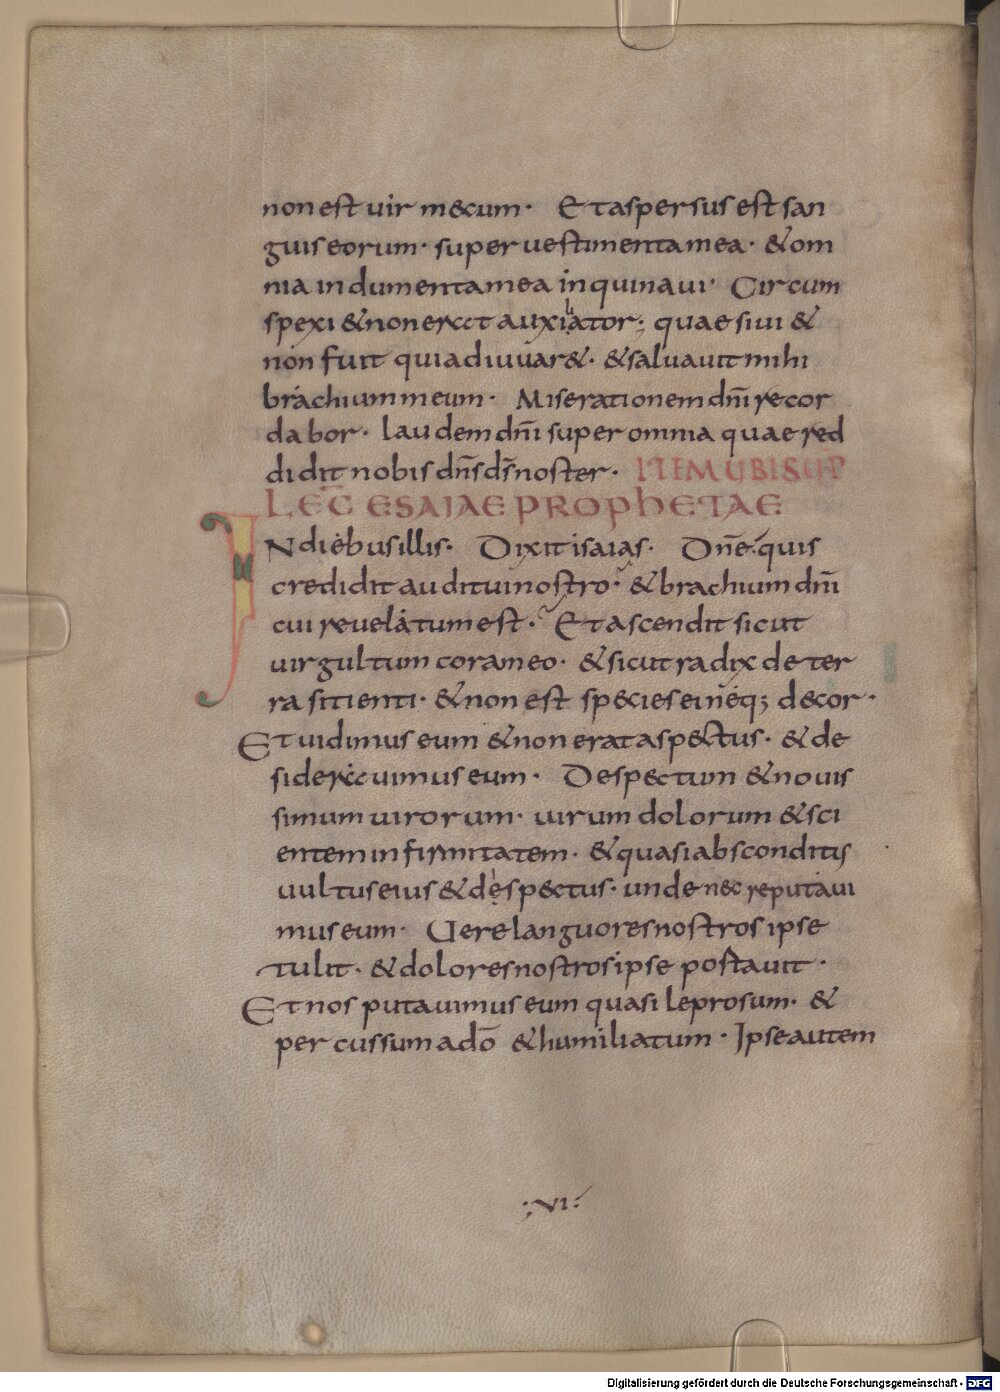 non est uir mecum · Et aspersus est san
guis eorum · super uestimenta mea · & om
nia indumenta mea inquinaui · Circum
spexi & non erat auxiator ; quaesiui &
non fuit qui adiuuar& · & saluauit mihi
brachium meum · Miserationem dn̄i recor
dabor · laudem dn̄i super omnia quae red
didit nobis dn̄s ds̄ noster · ITEM UBI SUP
LEC̄ ESAIAE PROPHETAE
IN diebus illis · Dixit isaias · Dn̄e quis
credidit auditui nostro · & brachium dn̄i
cui reuelatum est · Et ascendit sicut
uirgultum coram eo · & sicut radix de ter
ra sitienti · & non est species ei neq; decor ·
Et uidimus eum & non erat aspectus · & de
siderauimus eum · Despectum & nouis
simum uirorum · uirum dolorum & sci
entem infirmitatem · & quasi absconditus
uultus eius & despectus · unde nec reputaui
mus eum · Uere languores nostros ipse
tulit · & dolores nostros ipse postauit ·
Et nos putauimus eum quasi leprosum · &
percussum a dō & humiliatum · Ipse autem
· VI ·
Digitalisierung gefördert durch die Deutsche Forschungsgemeinschaft - DFG